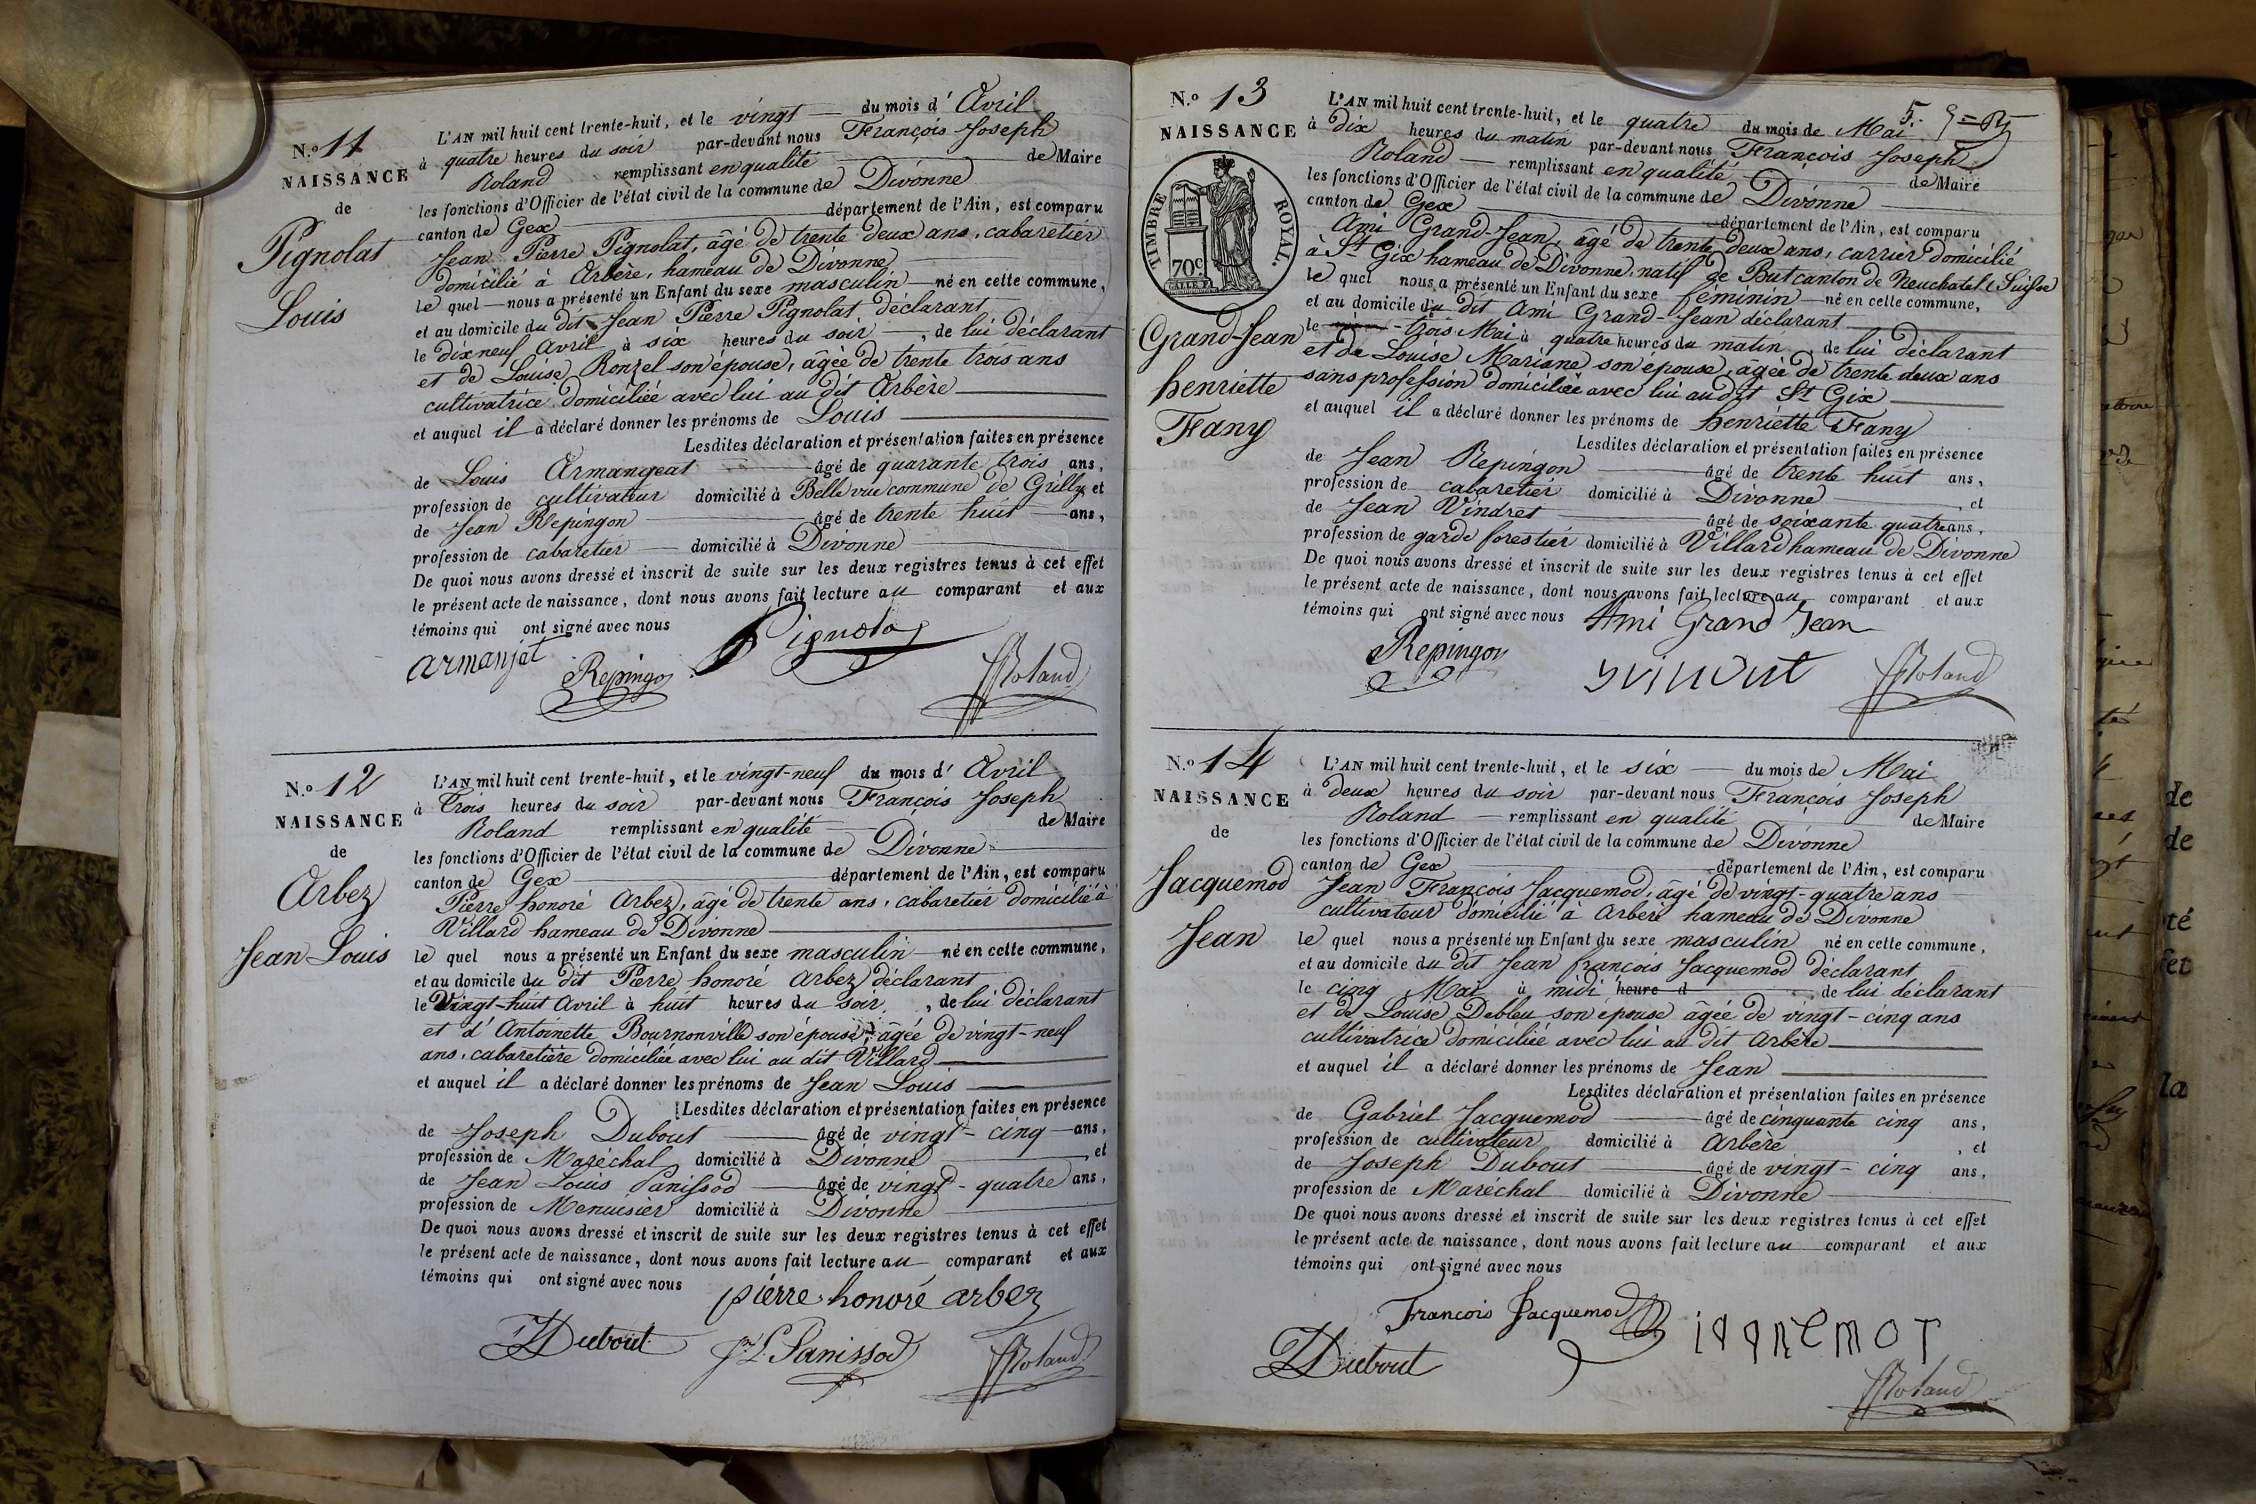 N.º 11
NAISSANCE
de
Pignolat
Louis
L'AN mil huit cent trente-huit, et le vingt du mois d' Avril
à quatre heures du soir par-devant nous François Joseph
Roland remplissant en qualité de Maire
les fonctions d'Officier de l'état civil de la commune de Divonne
canton de Gex département de l'Ain, est comparu
Jean Pierre Pignolat, âgé de trente deux ans, cabaretier
domicilié à Arbère, hameau de Divonne
le quel nous a présenté un Enfant du sexe masculin né en cette commune,
et au domicile du dit Jean Pierre Pignolat déclarant
le dix neuf Avril à six heures du soir, de lui déclarant
et de Louise Ronzel son épouse, âgée de trente trois ans
cultivatrice domiciliée avec lui au dit Arbère
et auquel il a déclaré donner les prénoms de Louis
Lesdites déclaration et présentation faites en présence
de Louis Armangeat âgé de quarante trois ans,
profession de cultivateur domicilié à Belle vue commune de Grilly et
de Jean Repingon âgé de trente huit ans,
profession de cabaretier domicilié à Divonne
De quoi nous avons dressé et inscrit de suite sur les deux registres tenus à cet effet
le présent acte de naissance, dont nous avons fait lecture au comparant et aux
témoins qui ont signé avec nous
Pignolat
armanjat Repingon Roland
N.º 12
NAISSANCE
de
Arbez
Jean Louis
L'AN mil huit cent trente-huit, et le vingt-neuf du mois d' Avril
à trois heures du soir par-devant nous François Joseph
Roland remplissant en qualité de Maire
les fonctions d'Officier de l'état civil de la commune de Divonne
canton de Gex département de l'Ain, est comparu
Pierre honoré Arbez, âgé de trente ans, cabaretier domicilié à
Villard hameau de Divonne
le quel nous a présenté un Enfant du sexe masculin né en cette commune,
et au domicile du dit Pierre honoré Arbez déclarant
le Vingt-huit Avril à huit heures du soir, de lui déclarant
et d'Antoinette Bournonville son épouse, âgée de vingt-neuf
ans, cabaretière domiciliée avec lui au dit Villard
et auquel il a déclaré donner les prénoms de Jean Louis
Lesdites déclaration et présentation faites en présence
de Joseph Dubout âgé de vingt-cinq ans,
profession de Maréchal domicilié à Divonne, et
de Jean Louis Panissod âgé de vingt-quatre ans,
profession de Menuisier domicilié à Divonne
De quoi nous avons dressé et inscrit de suite sur les deux registres tenus à cet effet
le présent acte de naissance, dont nous avons fait lecture au comparant et aux
témoins qui ont signé avec nous
pierre honoré arbez
Dubout Jn L. Panissod Roland
N.º 13
NAISSANCE
TIMBRE ROYAL.
70c
Grand-Jean
henriette
Fany
5.
L'AN mil huit cent trente-huit, et le quatre du mois de Mai
à dix heures du matin par-devant nous François Joseph
Roland remplissant en qualité de Maire
les fonctions d'Officier de l'état civil de la commune de Divonne
canton de Gex département de l'Ain, est comparu
Ami Grand-Jean, âgé de trente deux ans, carrier domicilié
à St Gix hameau de Divonne, natif de But canton de Neuchatel (Suisse
le quel nous a présenté un Enfant du sexe féminin né en cette commune,
et au domicile du dit Ami Grand-Jean déclarant
le trois Mai à quatre heures du matin, de lui déclarant
et de Louise Mariane son épouse, âgée de trente deux ans
sans profession domiciliée avec lui au dit St Gix
et auquel il a déclaré donner les prénoms de henriette Fany
Lesdites déclaration et présentation faites en présence
de Jean Repingon âgé de trente huit ans,
profession de cabaretier domicilié à Divonne, et
de Jean Vindret âgé de soixante quatre ans,
profession de garde forestier domicilié à Villard hameau de Divonne
De quoi nous avons dressé et inscrit de suite sur les deux registres tenus à cet effet
le présent acte de naissance, dont nous avons fait lecture au comparant et aux
témoins qui ont signé avec nous Ami Grand Jean
Repingon Roland
N.º 14
NAISSANCE
de
Jacquemod
Jean
L'AN mil huit cent trente-huit, et le six du mois de Mai
à deux heures du soir par-devant nous François Joseph
Roland remplissant en qualité de Maire
les fonctions d'Officier de l'état civil de la commune de Divonne
canton de Gex département de l'Ain, est comparu
Jean François Jacquemod, âgé de vingt-quatre ans
cultivateur domicilié à Arbère hameau de Divonne
le quel nous a présenté un Enfant du sexe masculin né en cette commune,
et au domicile du dit Jean françois Jacquemod déclarant
le cinq Mai à midi heure d, de lui déclarant
et de Louise Debleu son épouse âgée de vingt-cinq ans
cultivatrice domiciliée avec lui au dit Arbère
et auquel il a déclaré donner les prénoms de Jean
Lesdites déclaration et présentation faites en présence
de Gabriel Jacquemod âgé de cinquante cinq ans,
profession de cultivateur domicilié à Arbère, et
de Joseph Dubout âgé de vingt-cinq ans,
profession de Maréchal domicilié à Divonne
De quoi nous avons dressé et inscrit de suite sur les deux registres tenus à cet effet
le présent acte de naissance, dont nous avons fait lecture au comparant et aux
témoins qui ont signé avec nous
François Jacquemod
Dubout Roland
de
de
té
fet
la